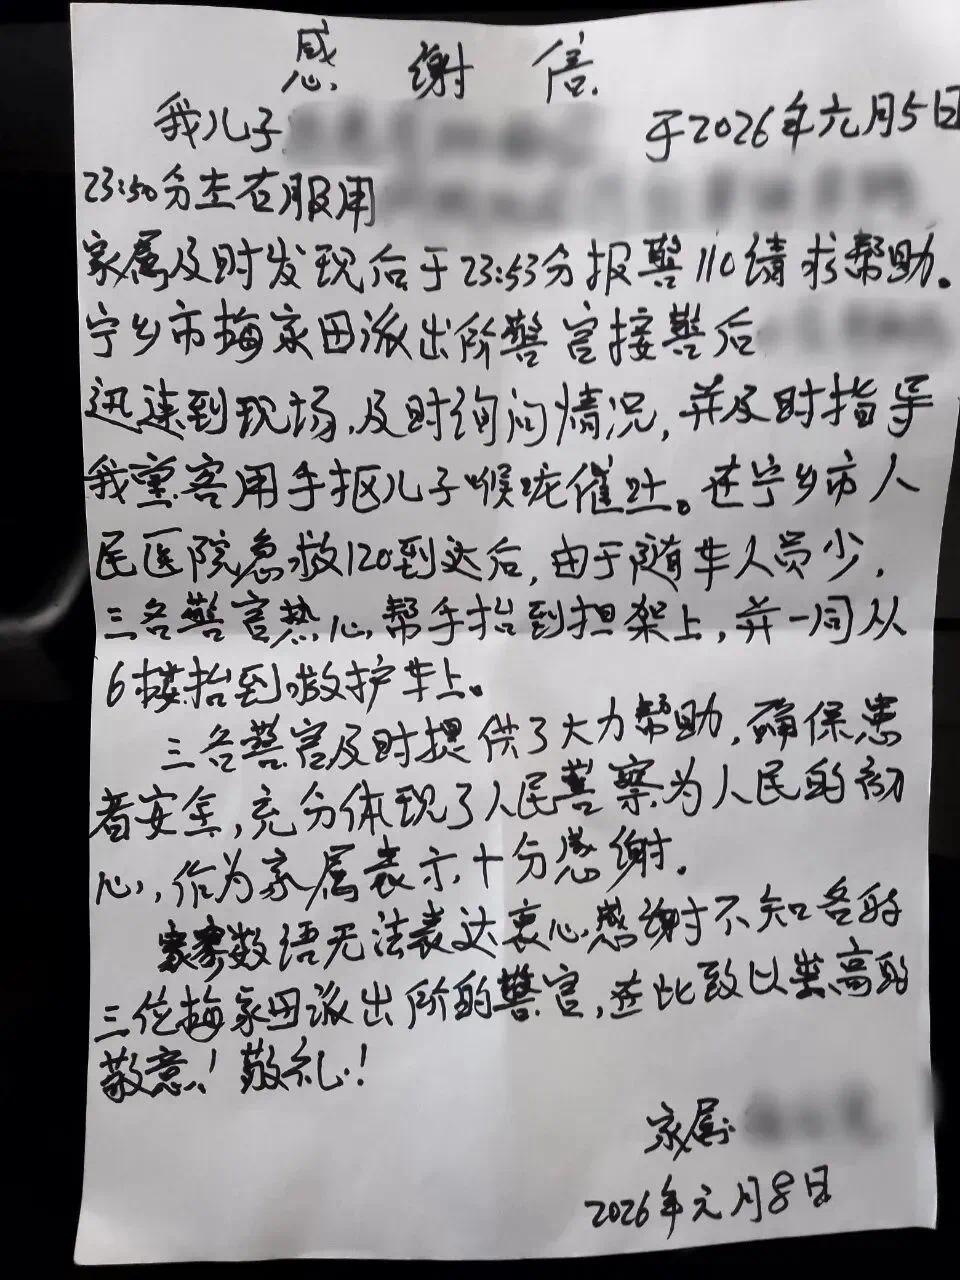 感谢信
我儿子 于2026年元月5日
23:50分左右服用
家属及时发现后于23:53分报警110请求帮助。
宁乡市梅家田派出所警官接警后
迅速到现场,及时询问情况,并及时指导
我里客用手抠儿子喉咙催吐。在宁乡市人
民医院急救120到达后,由于随车人员少,
三名警官热心帮手抬到担架上,并一同从
6楼抬到救护车上。
三名警官及时提供了大力帮助,确保患
者安全,充分体现了人民警察为人民的初
心,作为家属表示十分感谢.
寥寥数语无法表达衷心感谢对不知名的
三位梅家田派出所的警官,在此致以崇高的
敬意!敬礼!
家属:
2026年元月8日